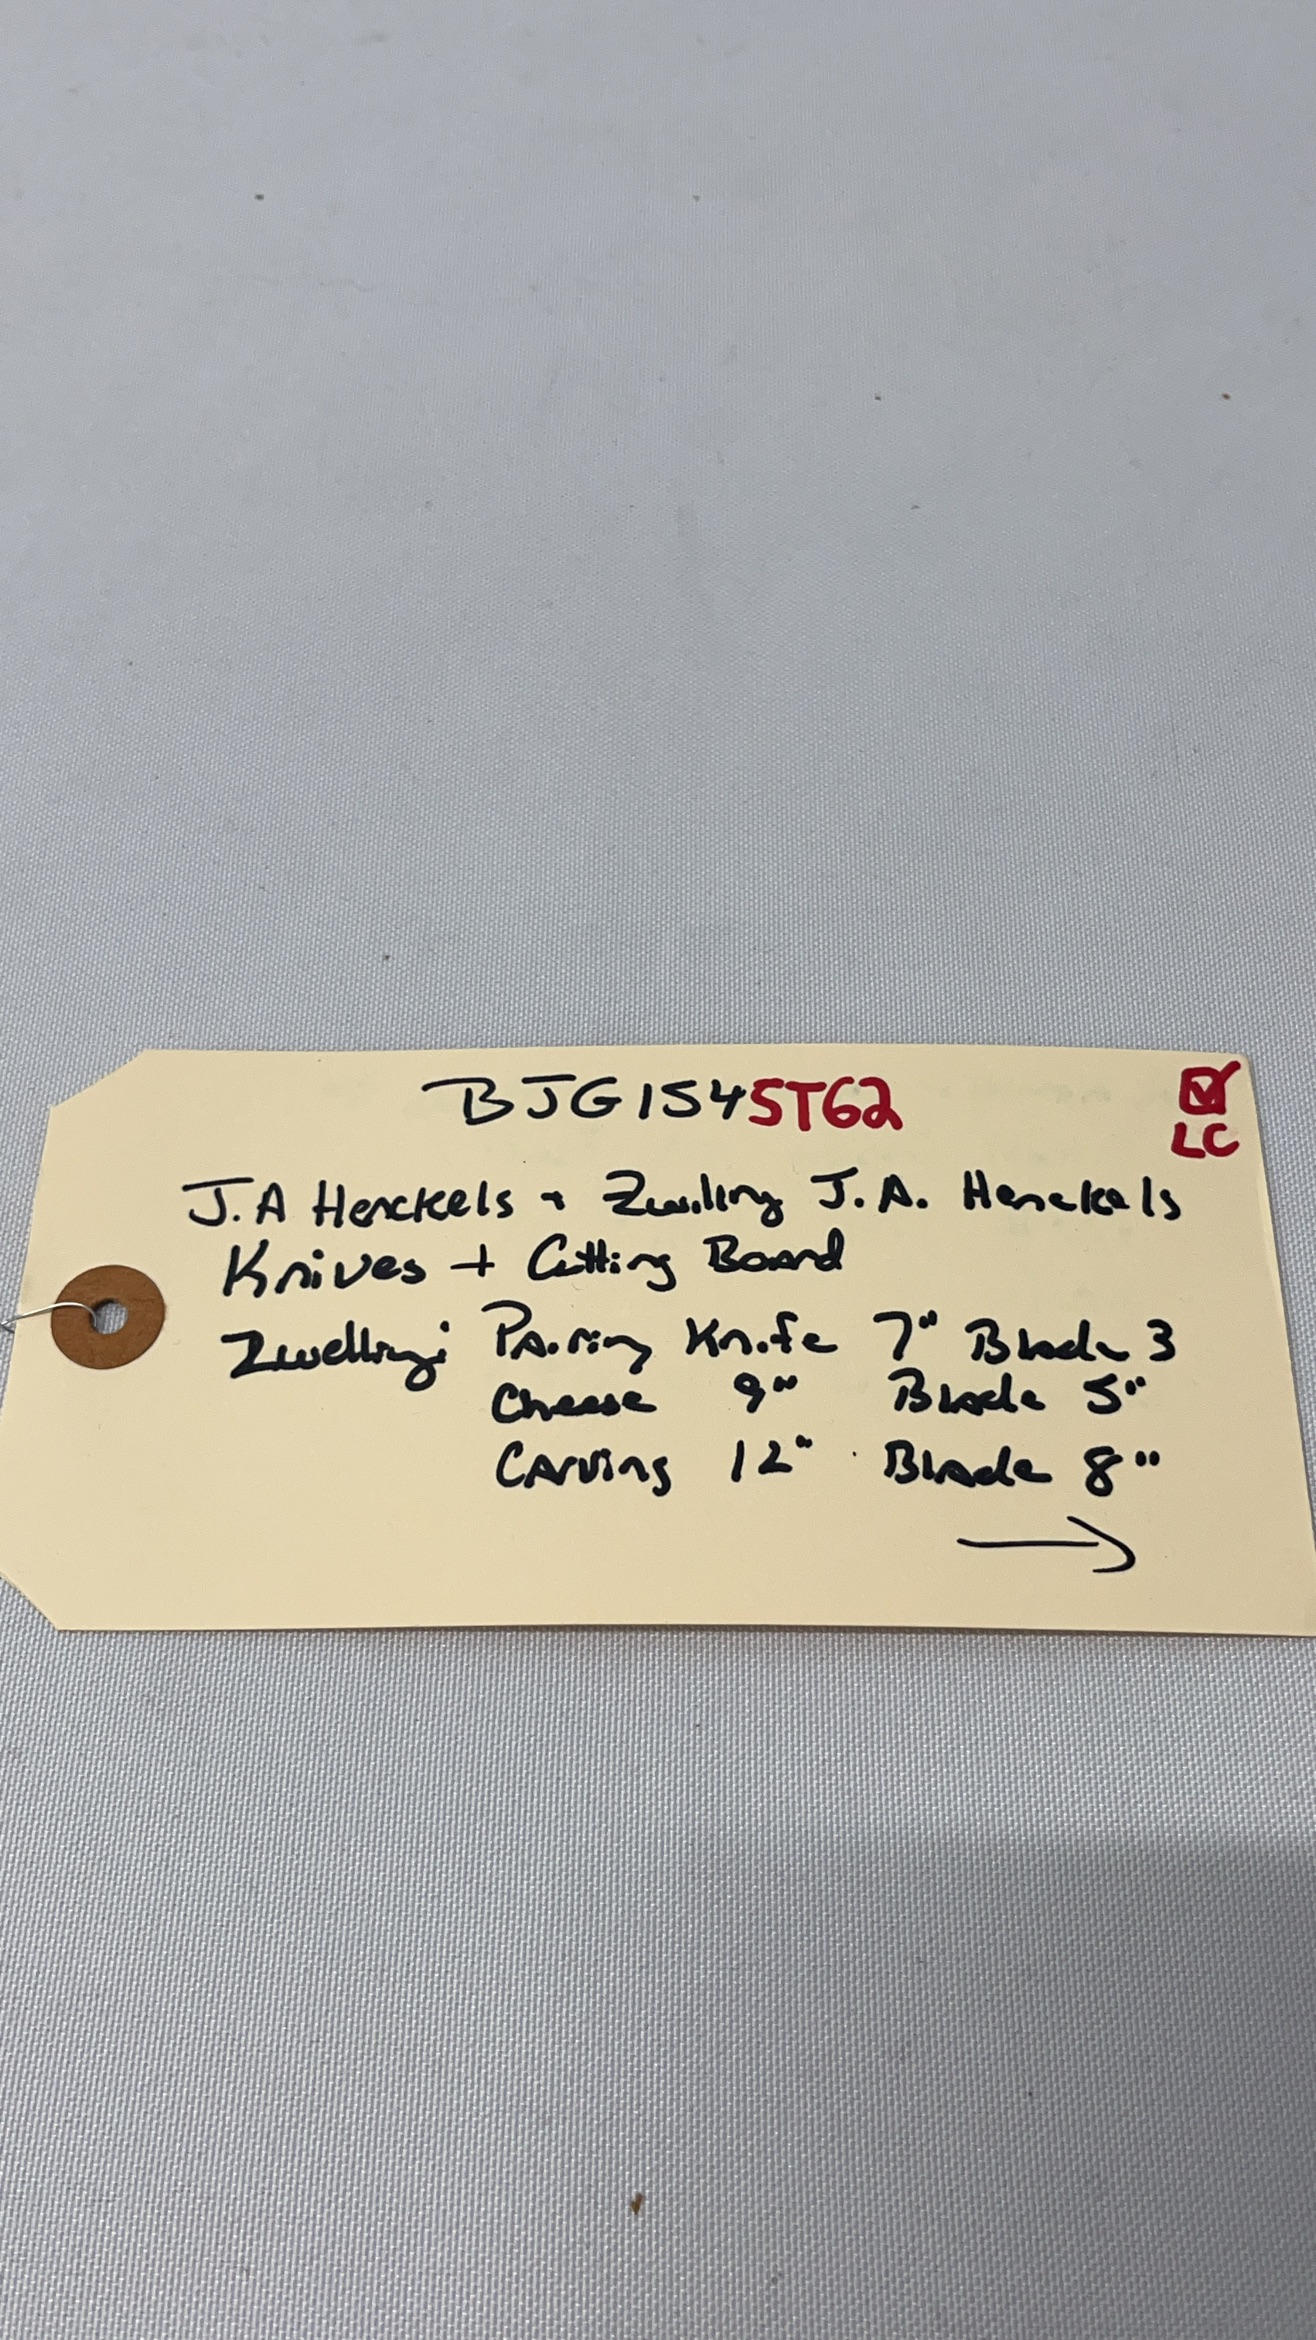 BJG154STG2
☑
LC
J.A Henckels + Zwilling J.A. Henckels
Knives + Cutting Board
Zwelling: Pairing Knife 7" Blade 3
Cheese 9" Blade 5"
Carving 12" Blade 8"
→